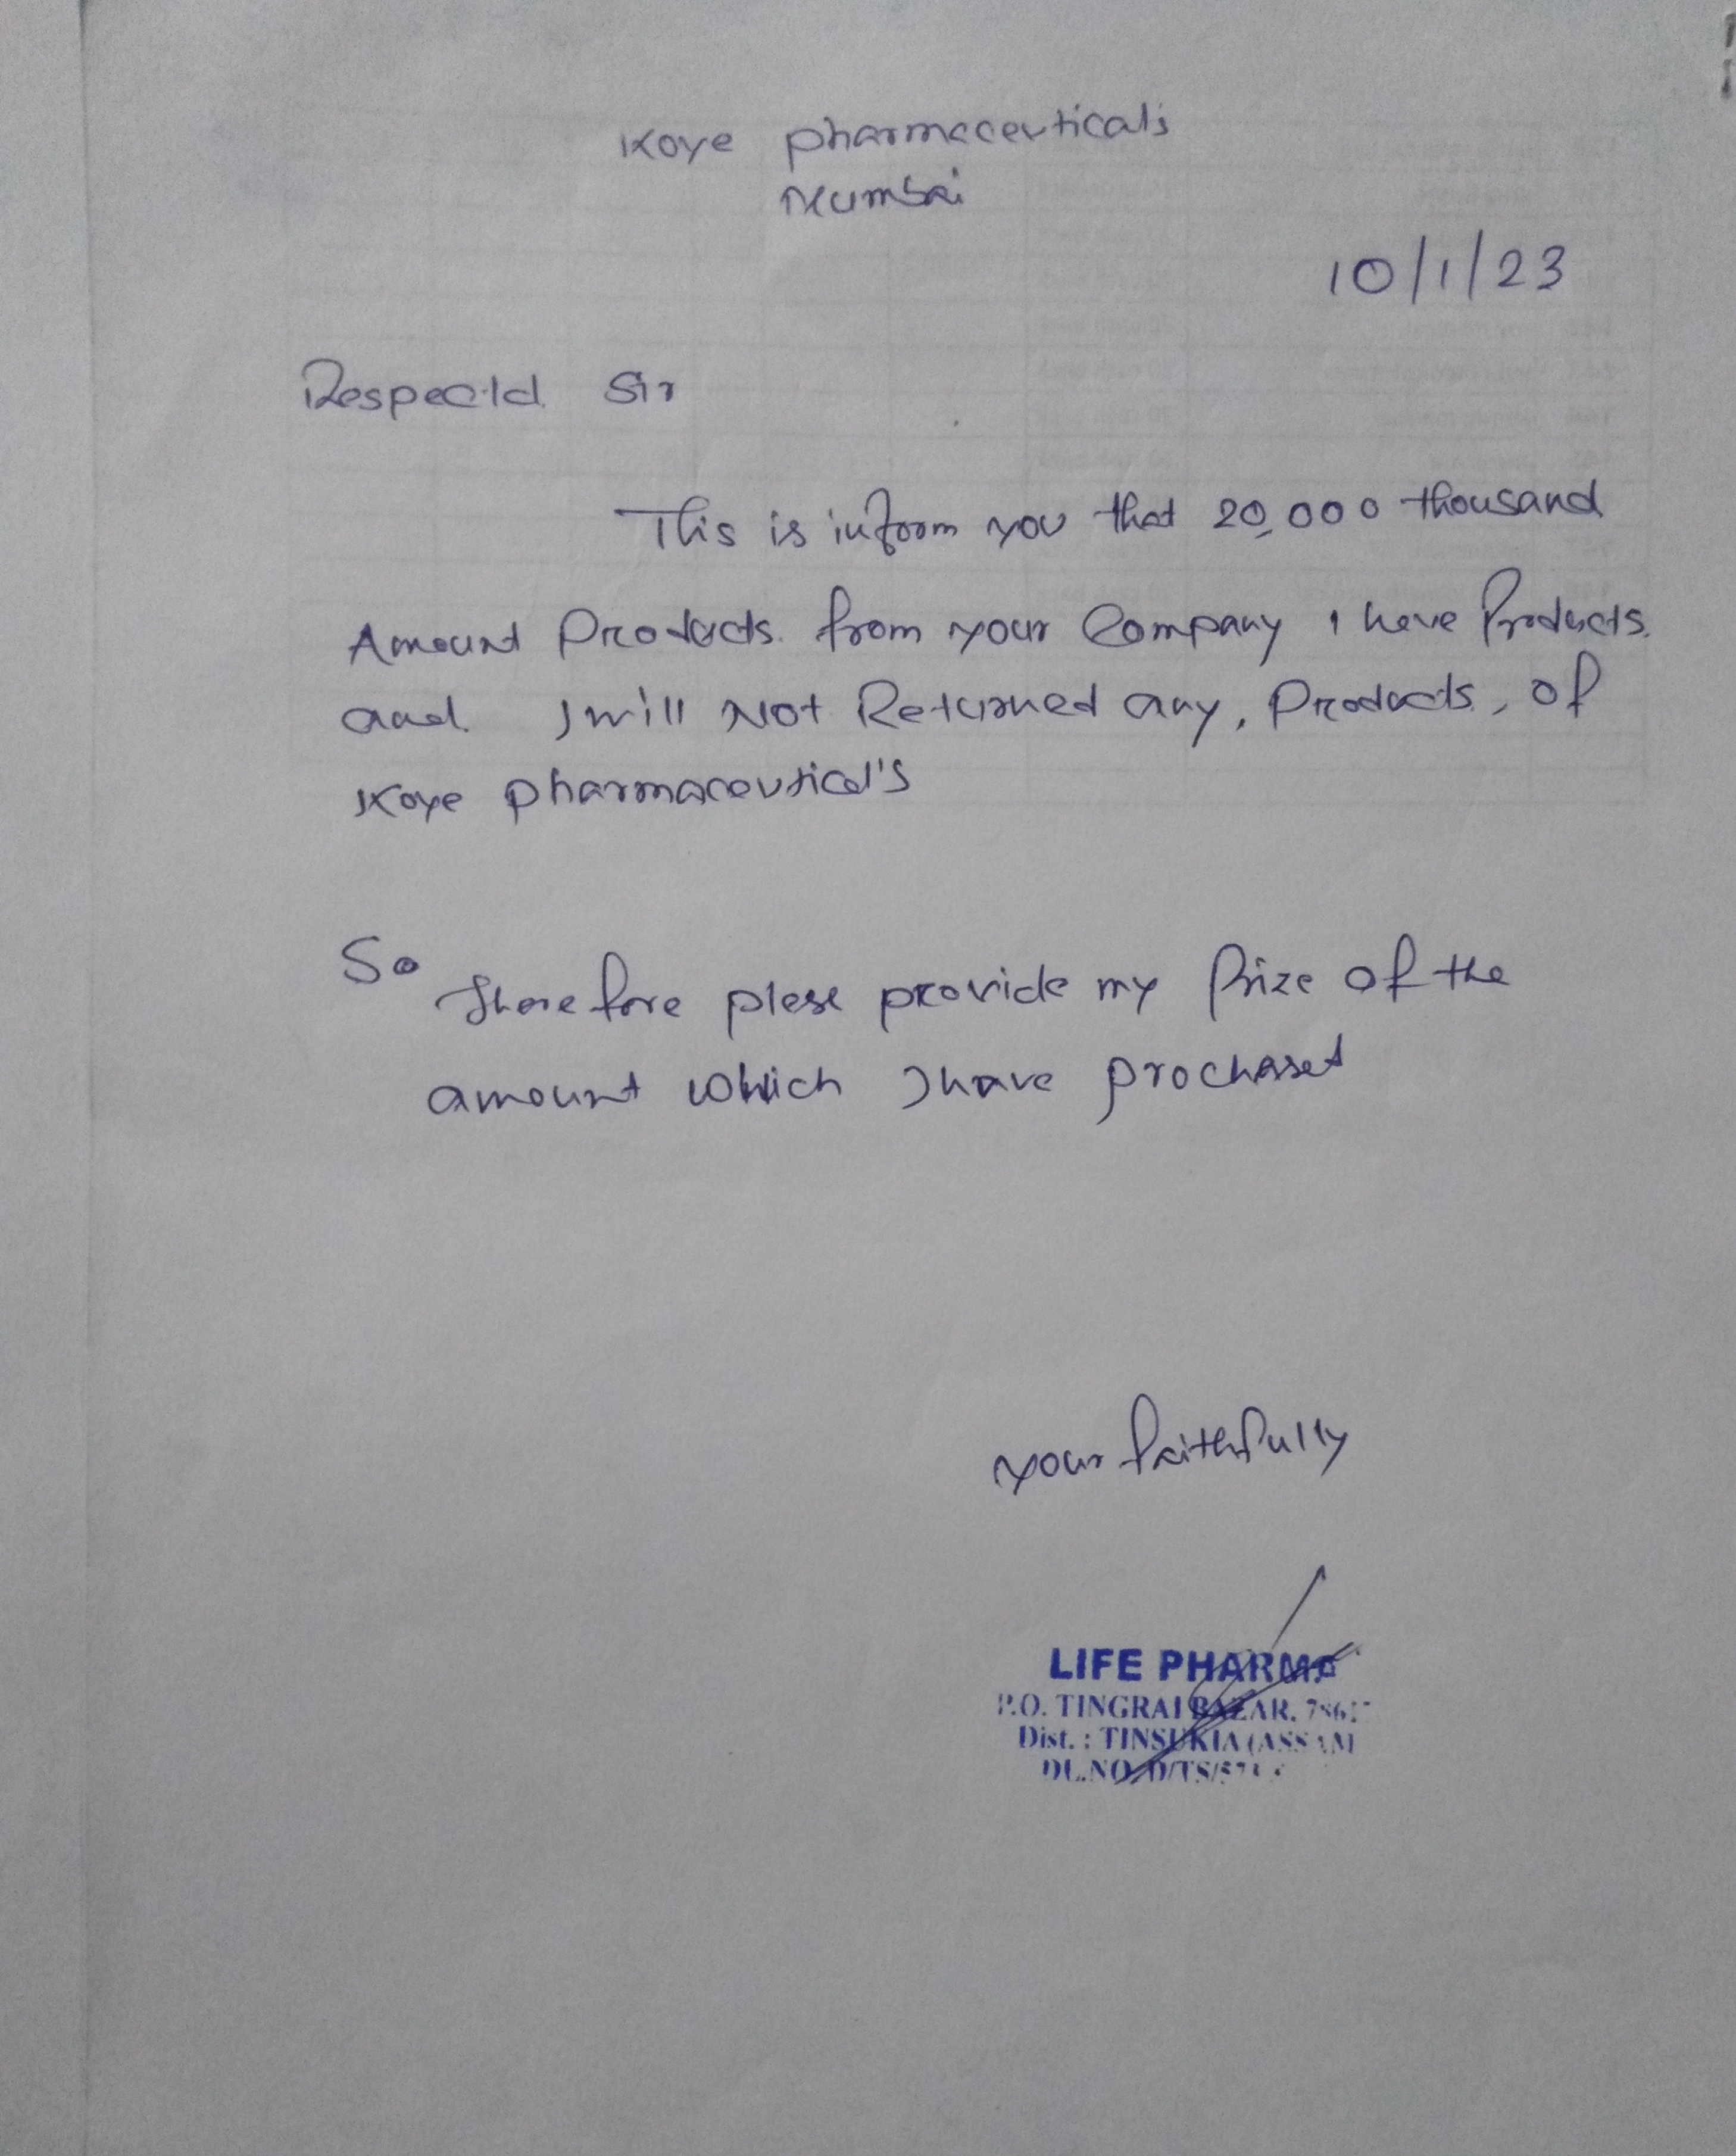 Koye pharmaceuticals
Mumbai
10/1/23
Respectd Sir
This is inform you that 20,000 thousand
Amount Products. from your Company I have Products.
and I will Not Returned any, Products, of
Koye pharmaceutical's
So therefore plese provide my Prize of the
amount which I have prochased
your faithfully
LIFE PHARMA
P.O. TINGRAI BAZAR.
Dist. : TINSUKIA (ASSAM
DL.NO. D/TS/